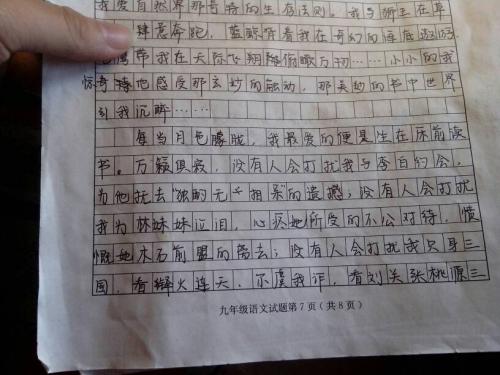 我爱自然界那奇特的生存法则。我与狮王在草
肆意奔跑，蓝鲸带着我在奇幻的海底遨游
带我在天际飞翔俯瞰万物……小小的我
惊奇地感受那玄妙的触动，那美妙的书中世界
引我沉醉……
每当月色朦胧，我最爱的便是坐在床前读
书。万籁俱寂，没有人会打扰我与李白约会，
为他抚去“独酌无相亲”的遗憾；没有人会打扰
我为林妹妹泣泪，心疼她所受的不公对待，愤
慨她木石前盟的舍去；没有人会打扰我只身三
国，看烽火连天，尔虞我诈，看刘关张桃源三
九年级语文试题第7页（共8页）